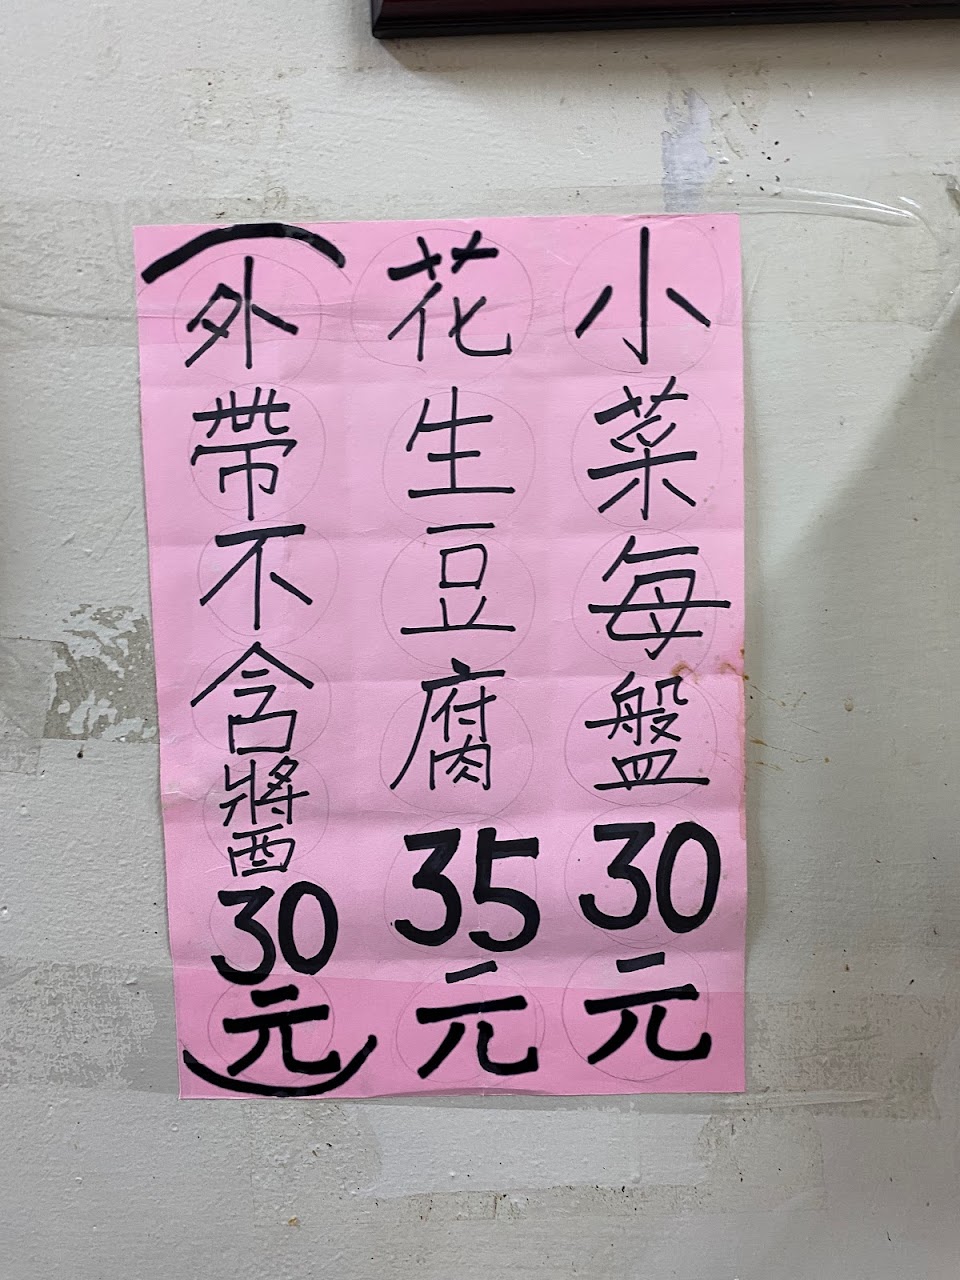 小菜每盤30元
花生豆腐35元
(外帶不含醬30元)